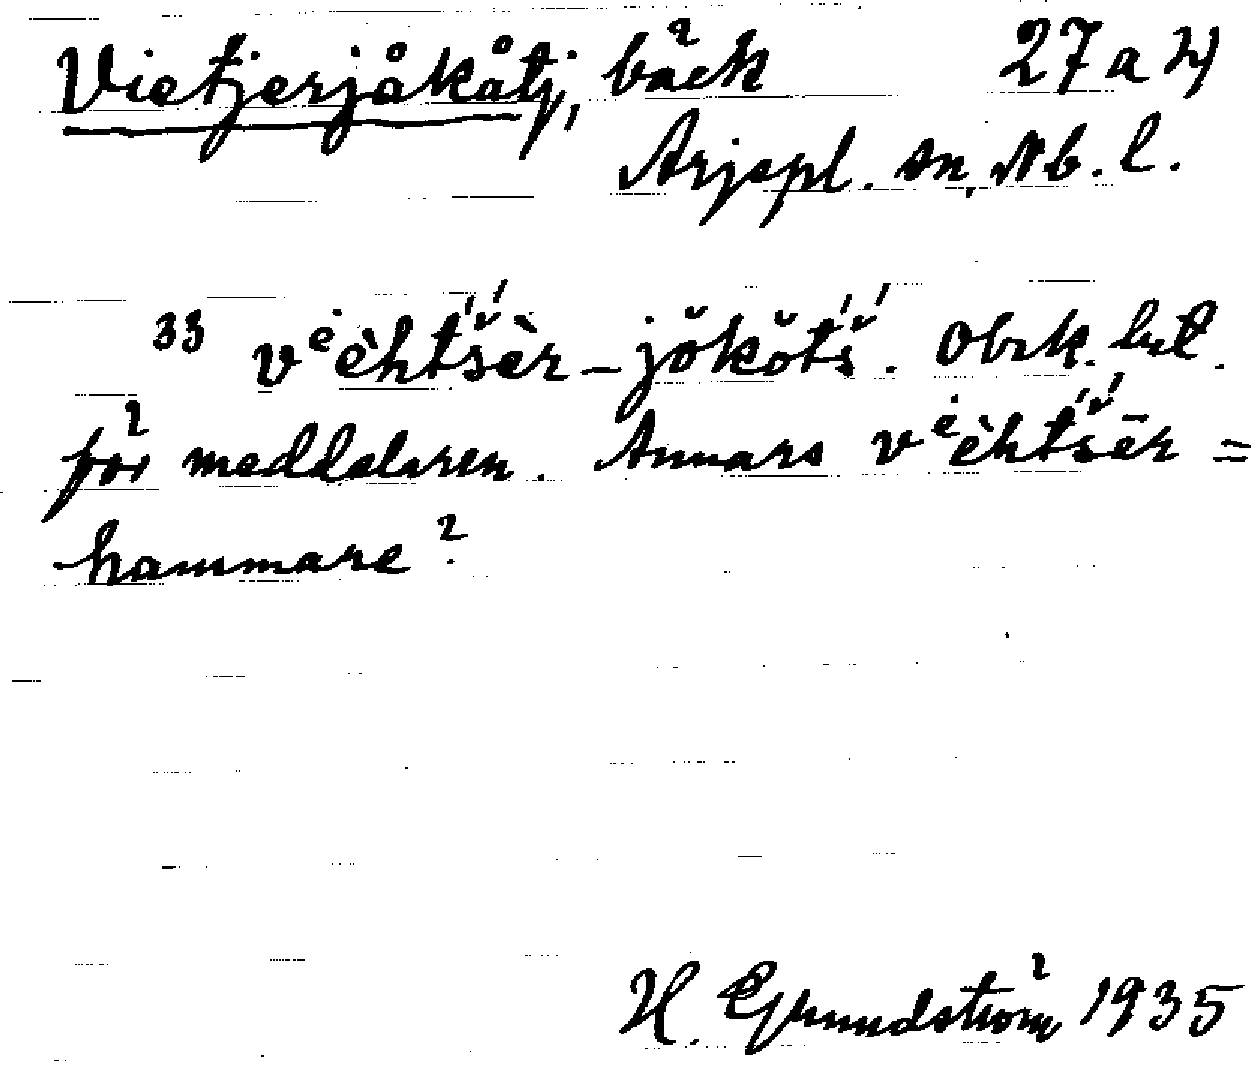 Vietjerjåkåtj, bäck 27 a 4
Arjepl. sn, Nb. l.
33 vėèhtš́èr - jŏkŏtš́. Obek. bet.
för meddelaren. Annars vėèhtš́ēr =
hammare?
H. Grundström 1935